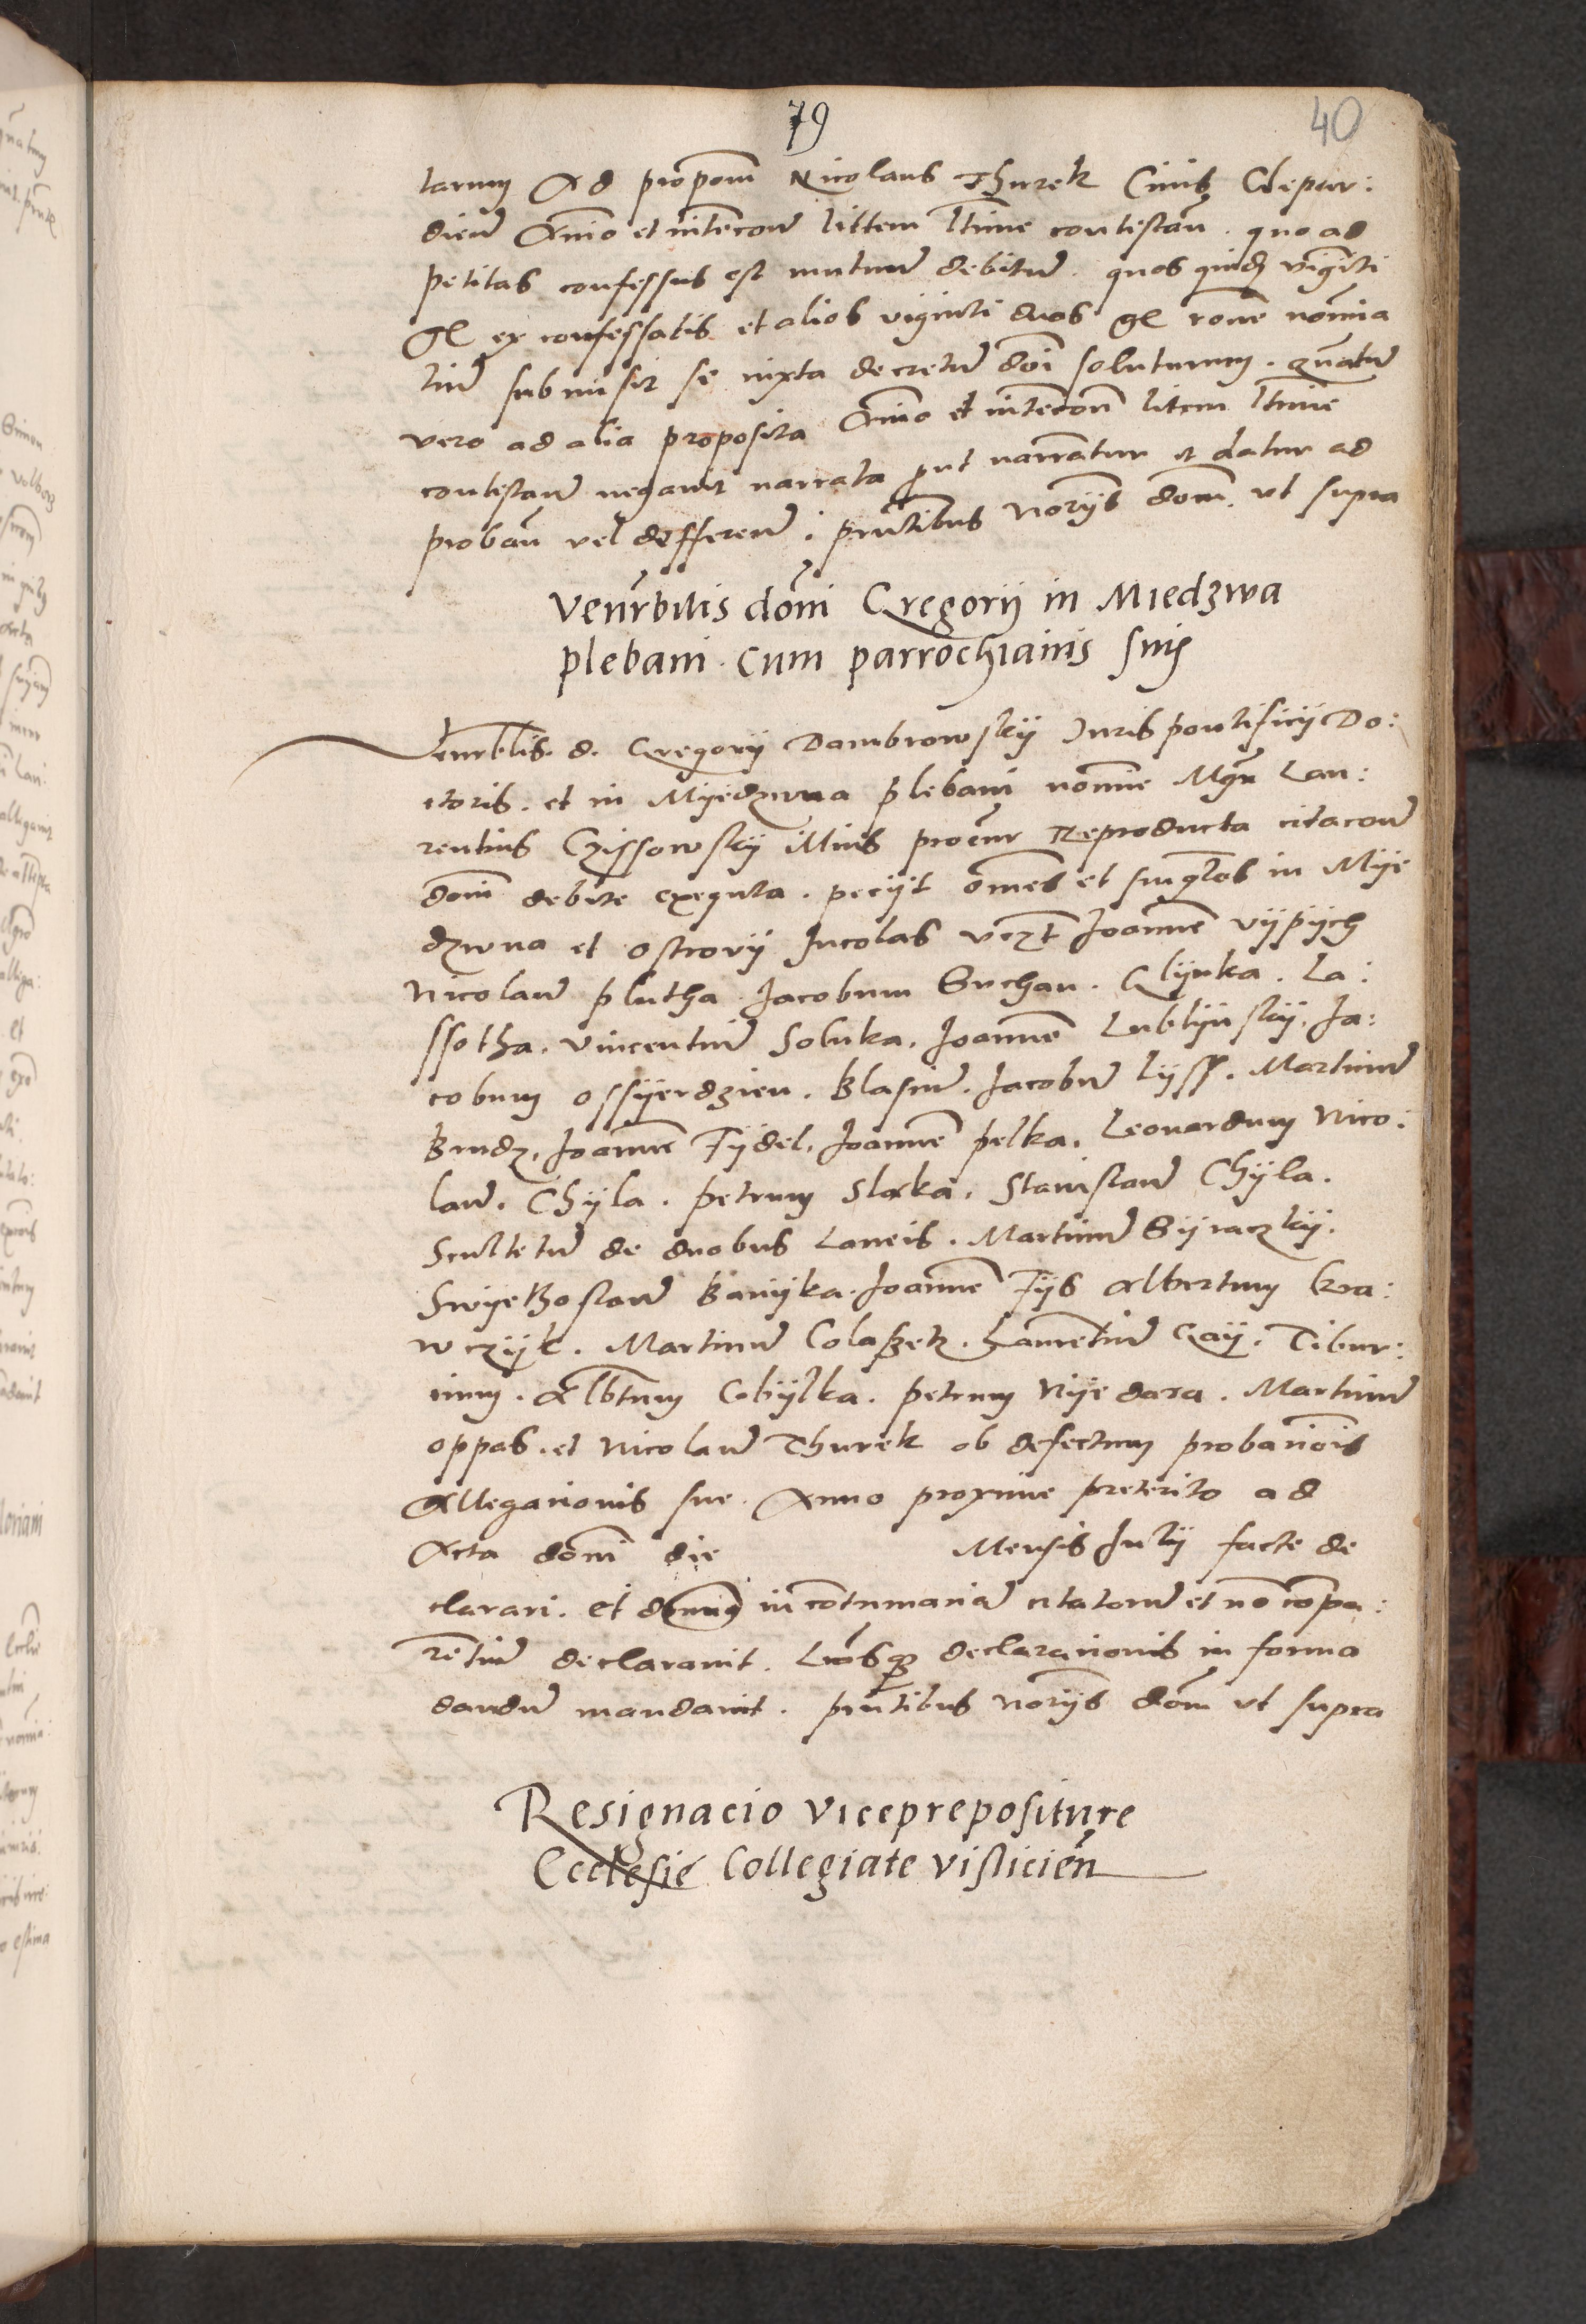 79
40
tarum Ad propom̄ Nicolaus Thurek Civis Clepar:
dień Animo et intencoñ littem l̄time contestań. quo ad
petitas confessus est mutuū debitū. quos quidē viginti
gl ex confessatis et alios viginti duos gl rōne nōmina
tim submisit se iuxta decretū dōi soluturum. quātū
vero ad alia proposita Animo et intencoñ litem l̄time
contestań negavit narrata prout narrantur et datur ad
probań vel differeñ. pn̄tibus norijs dom̄. vt supra
Venr̄bilis dom̄i Gregorij in Miedzwa
plebani. cum parrochianis suis
Venrblis. d. Gregorij Dambrowskij Juris pontificij Do:
ctoris. et in Mijedzwua plebani nomine Mgr̄ Lau:
rentius Czissowskij illius procur̄ Reproducta citacoñ
dom̄ debite exequta. pecijt omēs et singl̄os in Mije
dzwua et ostrovij Incolas vezt̄ Joannē vijpijch
Nicolaū plutha. Jacobum Suchan. Glijnka. La:
ssotha. vincentiū Soluka. Joannē Lublijnskij. Ja:
cobum ossijerdzien. Blasiū. Jacobū lijss. Martinū
Brudz. Joannē Fijdel. Joannē pelka. Leonardum Nico:
laū. Chijla. petrum Slaka. Stanislaū Chijla.
Scultetū de duobus Laneis. Martinū Sijraczkij.
Swijethoslaū Banijka. Joannē Fijs Albertum kra:
wczijk. Martinū Colaßek. Laurētiū Gaij. Tibur:
cium. Alb̄tum Cobijlka. petrum Nijedara. Martinū
oppas. et Nicolaū Thurek ob defectum probacionis
Allegacionis sue. Anno proxime preterito ad
Acta dom̄i die Mensis Julij facte de
clarari. et dominus in contumaciā citatorū et nō compa:
rētiū declaravit. Lrāsq̨ declaracionis in forma
dandū mandavit. pn̄tibus norijs dom̄ vt supra
Resignacio viceprepositure
Ecclesie Collegiate visliciēn